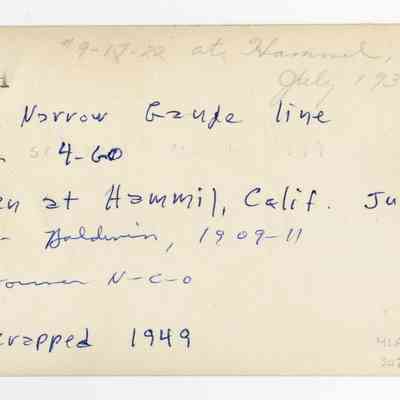 #9-18-22 at Hammel,
July 193
H
Narrow Gauge line
4-60
en at Hammil, Calif. Ju
Baldwin, 1909-11
ormer N-C-O
crapped 1949